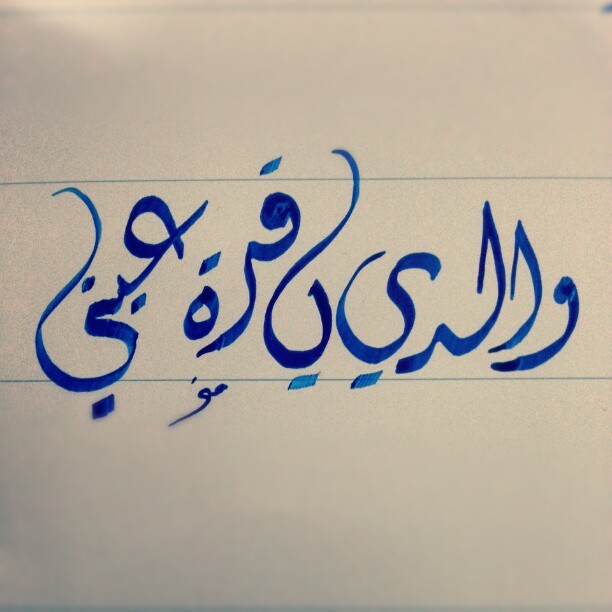 والدي يا قرة عيني
مؤ